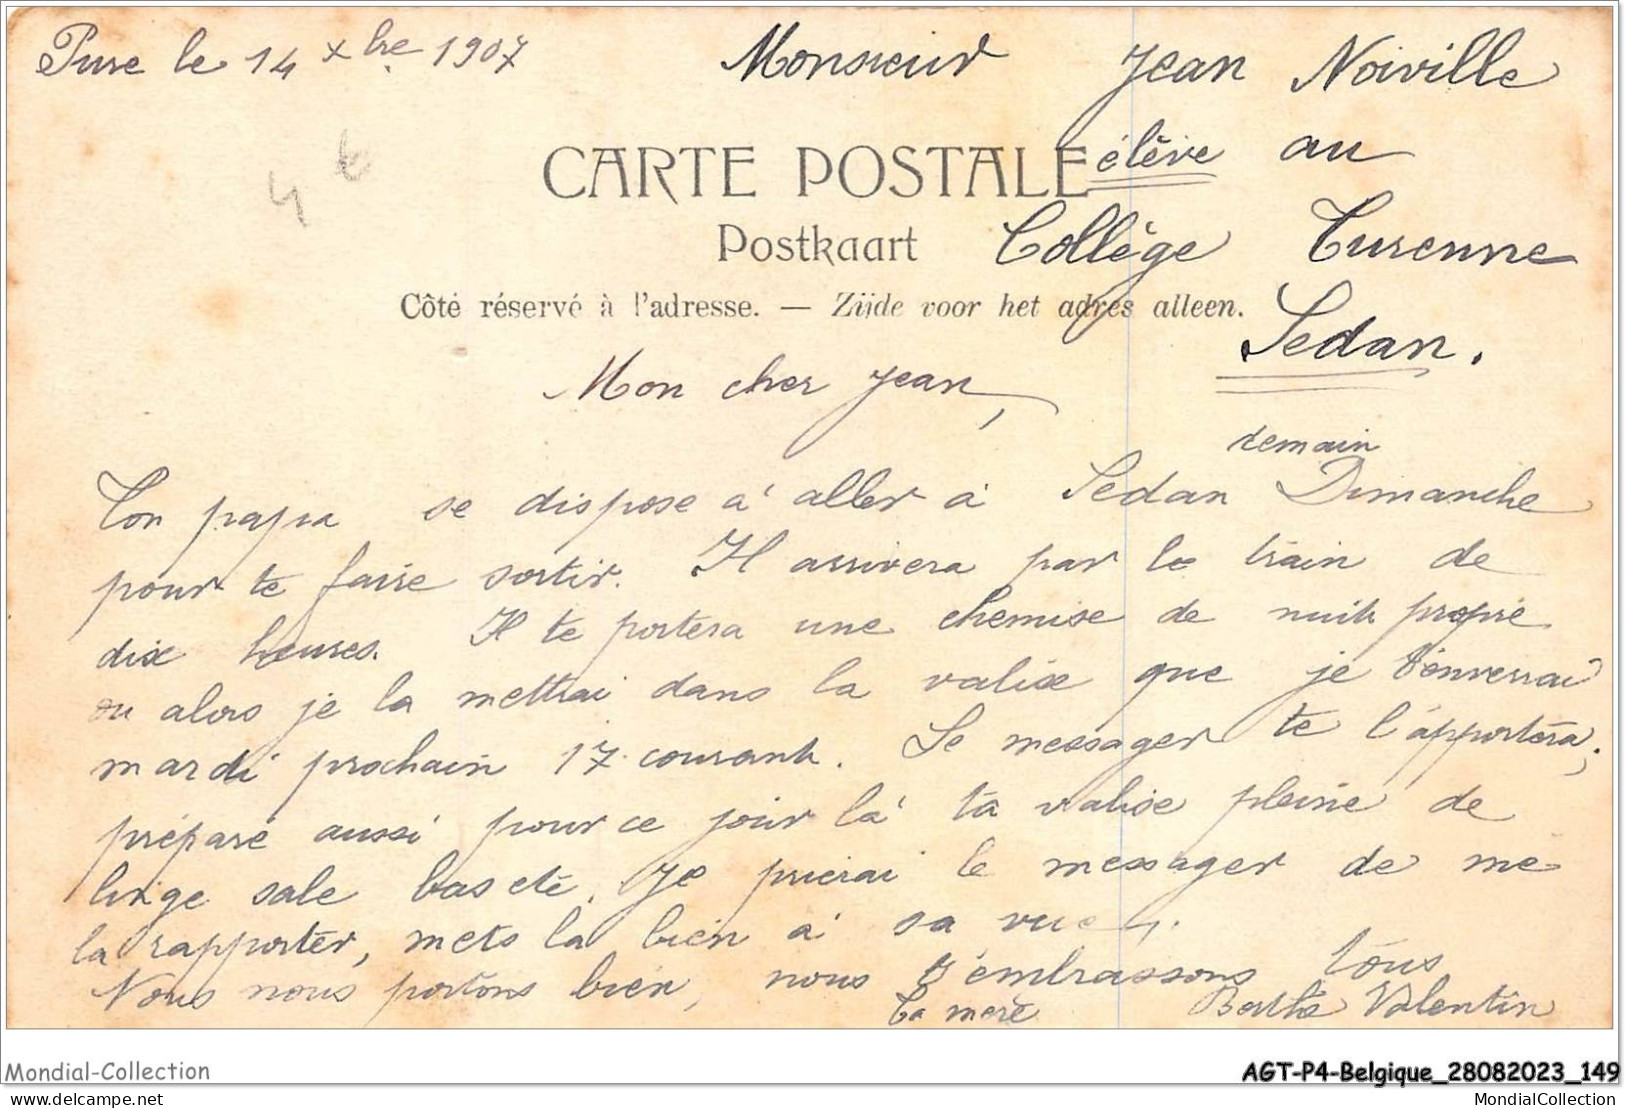 Pure le 14 xbre 1907
Monsieur Jean Noiville
élève au
Collège Turenne
Sedan.
4 €
CARTE POSTALE
Postkaart
Côté réservé à l'adresse. — Zijde voor het adres alleen.
Mon cher Jean,
demain
Ton papa se dispose à aller à Sedan Dimanche
pour te faire sortir. Il arrivera par le train de
dix heures. Il te portera une chemise de nuit propre
ou alors je la mettrai dans la valise que je t'enverrai
mardi prochain 17 courant. Le messager te l'apportera;
préparé aussi pour ce jour là ta valise pleine de
linge sale bas etc. Je prierai le messager de me
la rapporter, mets la bien à sa vue.
Nous nous portons bien, nous t'embrassons tous
Ta mère Berthe Valentin
Mondial-Collection
AGT-P4-Belgique_28082023_149
delcampe.net
MondialCollection